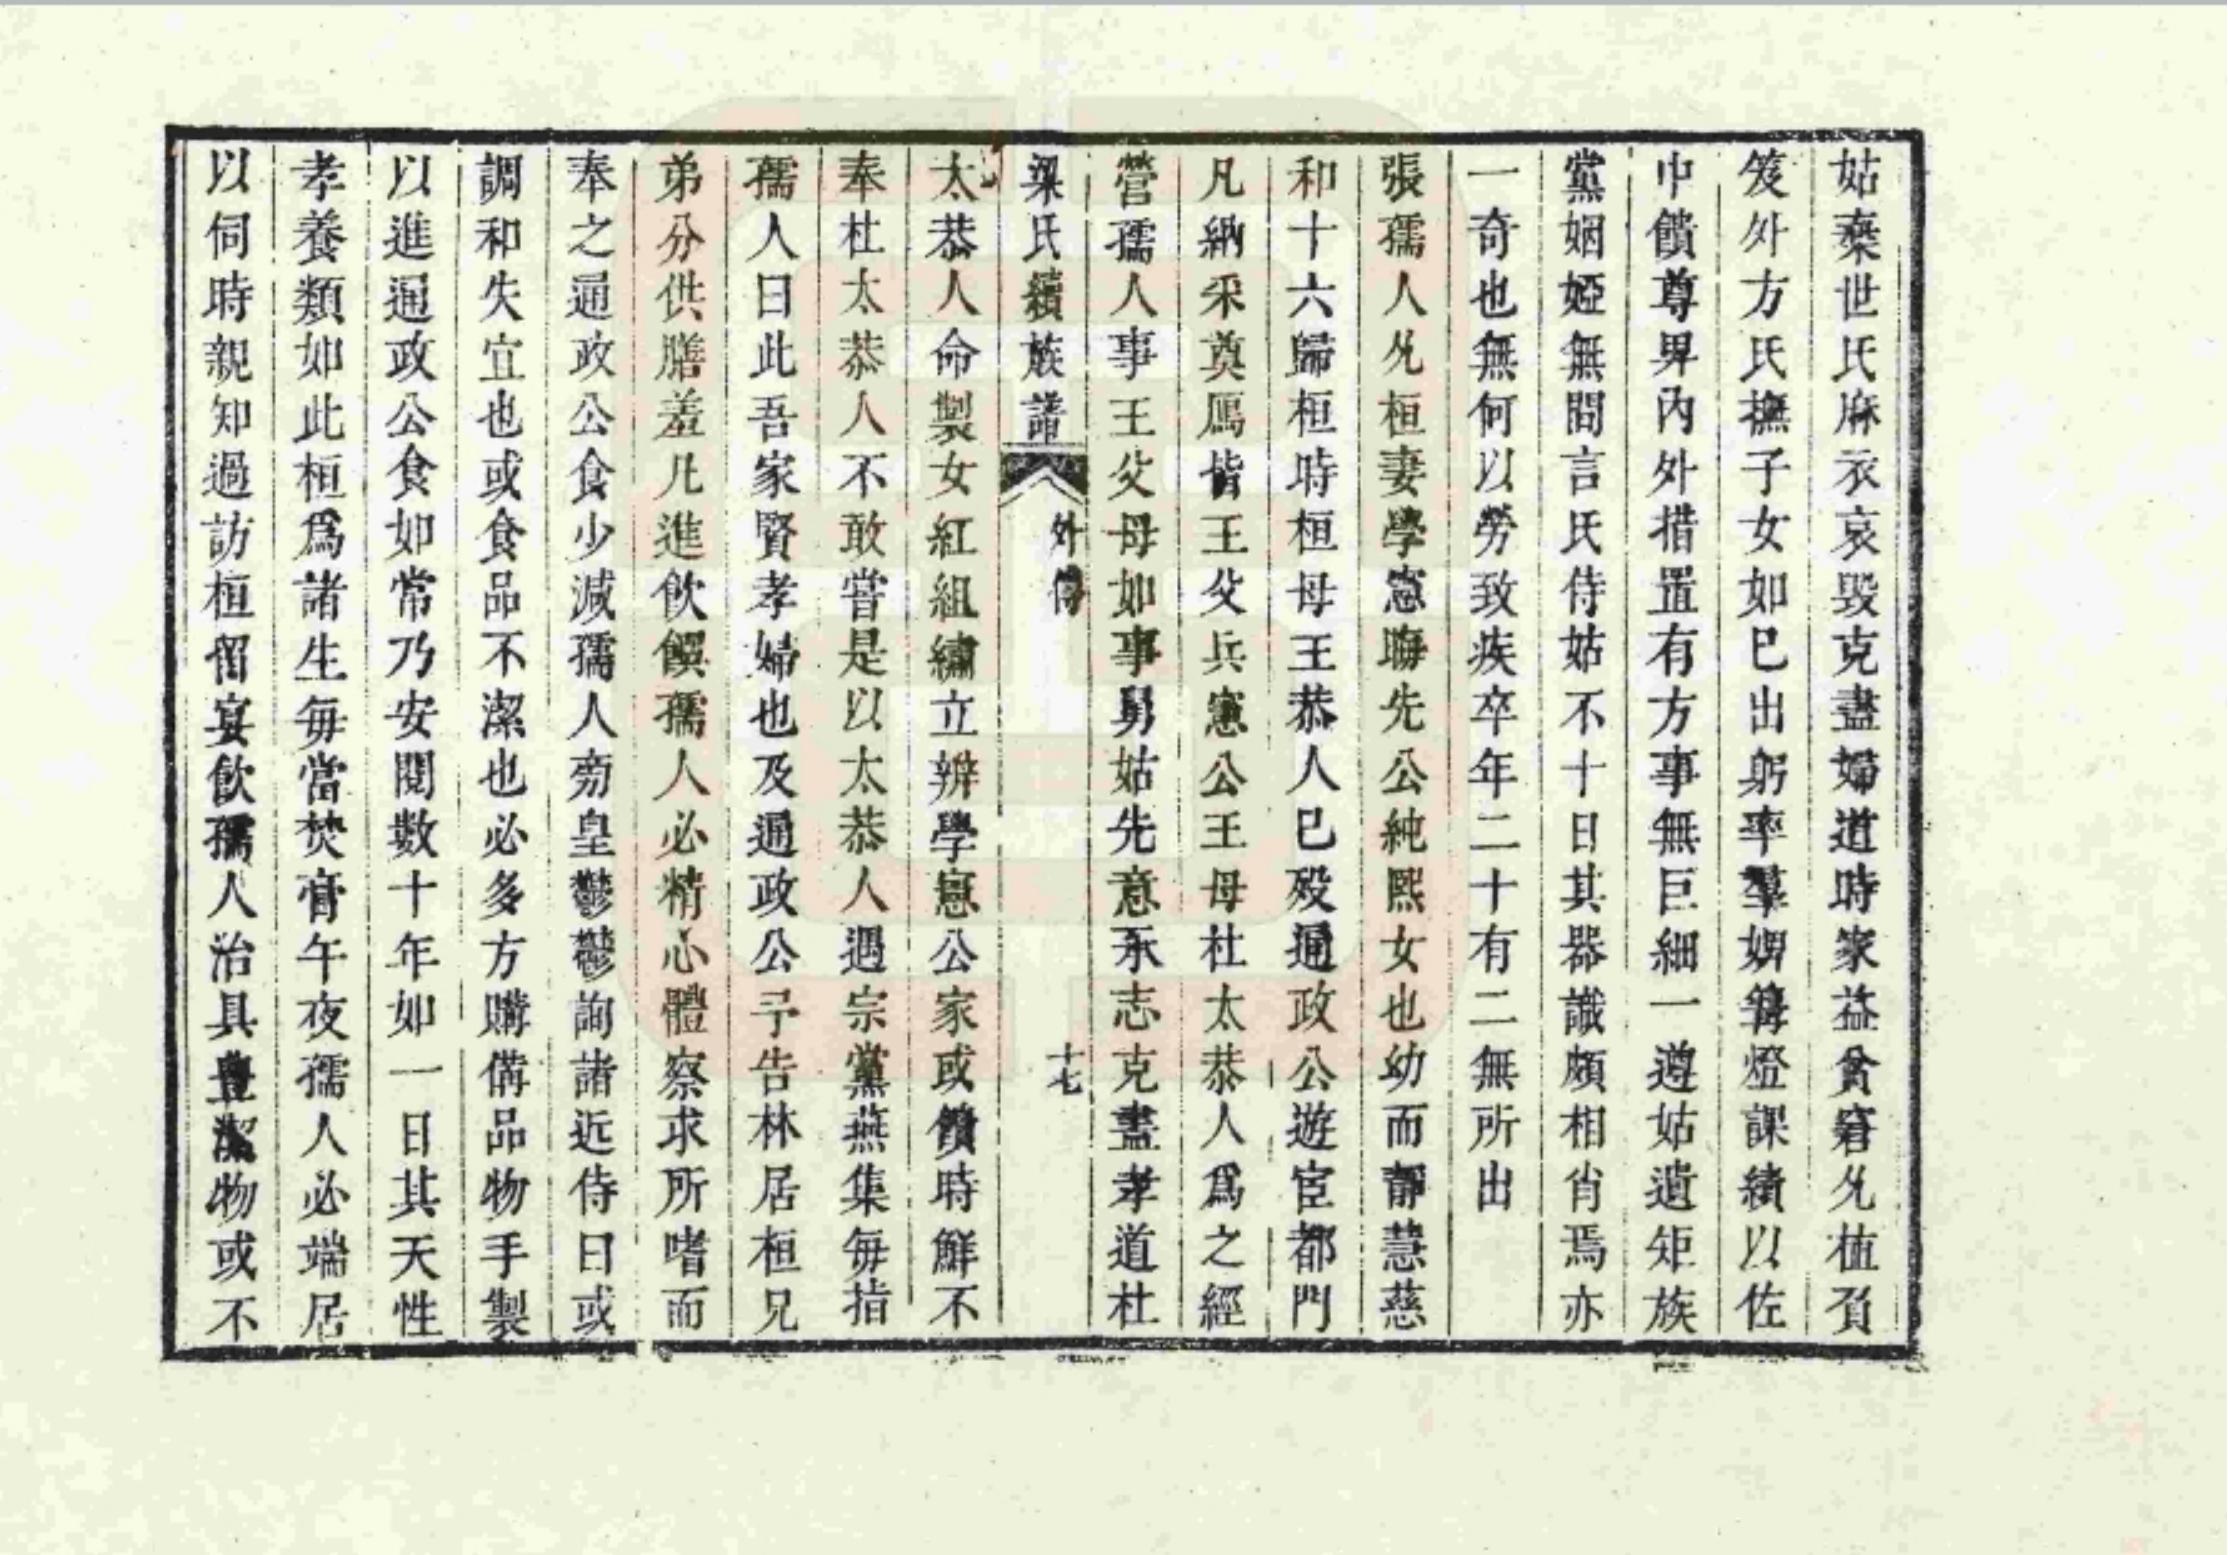 姑棄世氏麻衣哀毀克盡婦道時家益貪窘允植負
笈外方氏撫子女如巳出躬率羣婢篝燈課績以佐
中饋尊畀內外措置有方事無巨細一遵姑遺矩族
黨姻婭無間言氏侍姑不十日其器識頗相肖焉亦
一奇也無何以勞致疾卒年二十有二無所出
張孺人允桓妻學憲晦先公純熙女也幼而靜慧慈
和十六歸桓時桓母王恭人巳歿通政公遊宦都門
凡納采奠鴈皆王父兵憲公王母杜太恭人爲之經
營孺人事王父母如事舅姑先意承志克盡孝道杜
梁氏續族譜 外傳 十七
太恭人命製女紅組繡立辨學憲公家或饋時鮮不
奉杜太恭人不敢嘗是以太恭人遇宗黨燕集每指
孺人曰此吾家賢孝婦也及通政公予告林居桓兄
弟分供膳羞凡進飲饌孺人必精心體察求所嗜而
奉之通政公食少減孺人旁皇鬱鬱詢諸近侍曰或
調和失宜也或食品不潔也必多方購備品物手製
以進通政公食如常乃安閱數十年如一日其天性
孝養類如此桓爲諸生每當焚膏午夜孺人必端居
以伺時親知過訪桓留宴飲孺人治具豊潔物或不